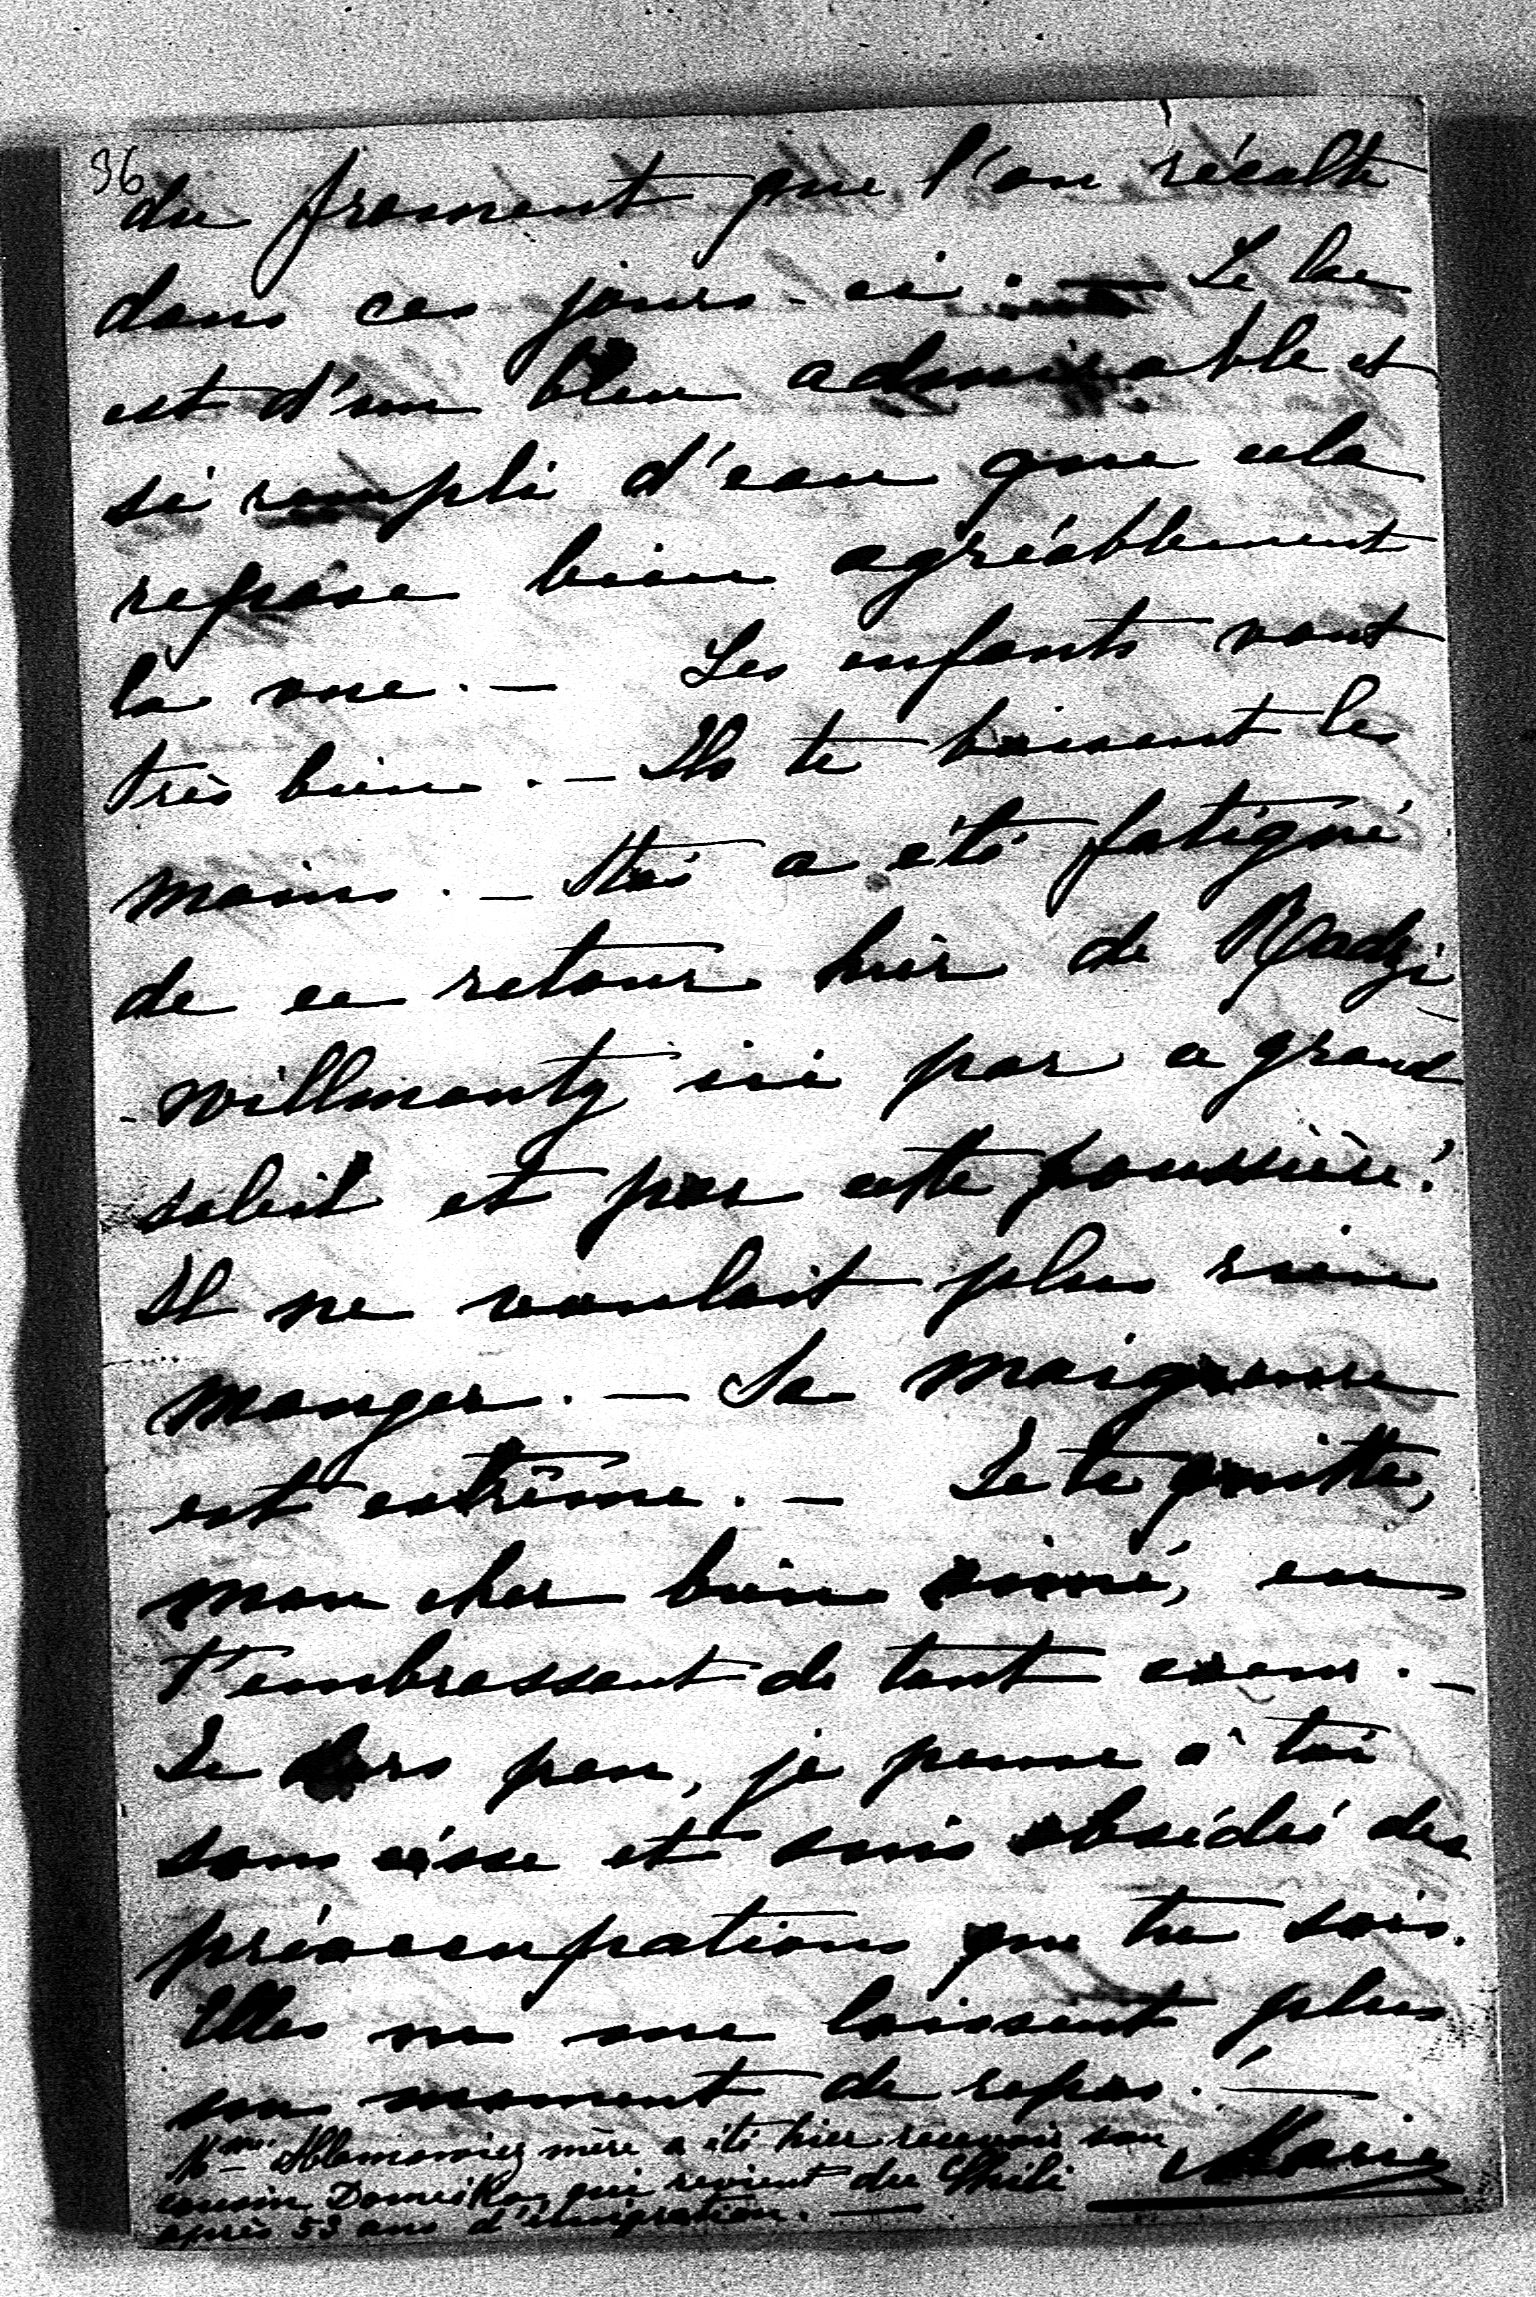 36
du froment que l'on récolte
dans ces jours-ci. — Le lac
est d'un bleu admirable et
si rempli d'eau que cela
repose bien agréablement
la vue. — Les enfants vont
très bien. — Ils te baisent les
mains. — Staś a été fatigué
de ce retour hier de Radzi-
-willmonty ici par ce grand
soleil et par cette poussière!
Il ne voulait plus rien
manger. — Sa maigreur
est extrême. — Je te quitte,
mon cher bien aimé, en
t'embrassant de tout cœur. —
Je dors peu, je pense à toi
sans cesse et suis obsédée des
préoccupations que tu sais.
Elles ne me laissent plus
un moment de repos! —
Marie
Mme Ablamowicz mère a été hier recevoir son
cousin Domeiko, qui revient du Chili
après 53 ans d'émigration. —